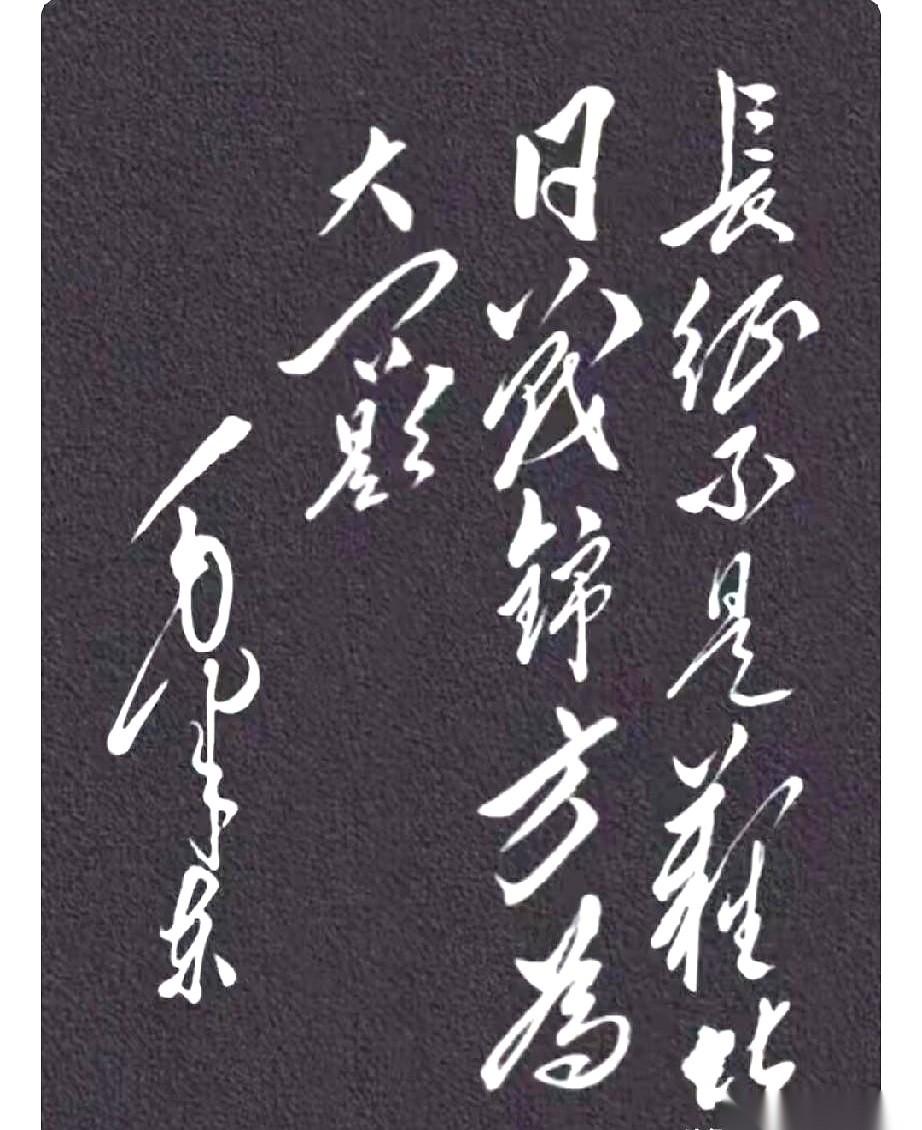 長征不是難堪
日戰錦方為
大問題
毛泽东